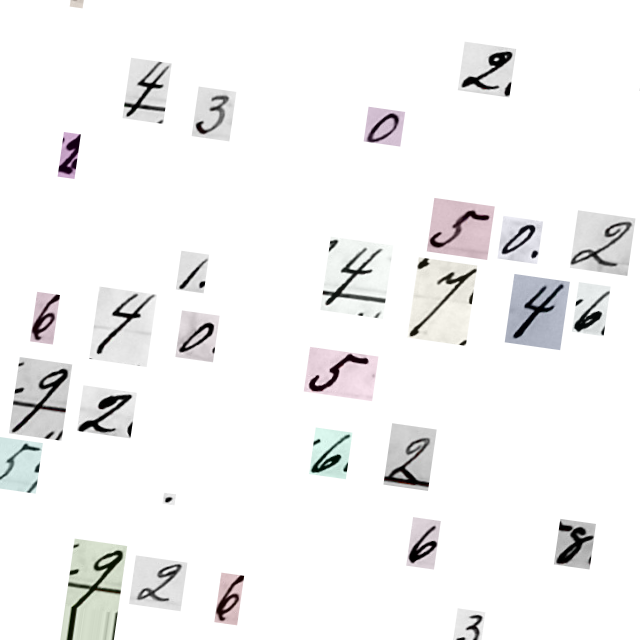 2.
4 3 0
2
5 0. 2
1. 4 7 4 6
6 4 0
5
9 2.
5 6. 2
6 8.
9 2 6
3